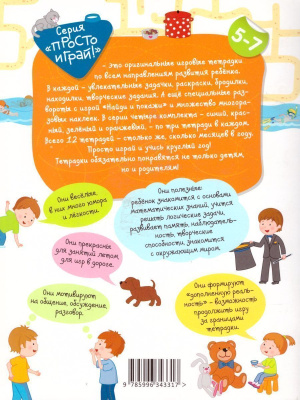 Серия
«ПРОСТО
ИГРАЙ!»
5-7
- это оригинальные игровые тетрадки
по всем направлениям развития ребёнка.
В каждой - увлекательные задачки, раскраски, бродилки,
находилки, творческие задания. А ещё специальные раз-
вороты с игрой «Найди и покажи» и множество многора-
зовых наклеек. В серии четыре комплекта - синий, крас-
ный, зелёный и оранжевый, - по три тетради в каждом.
Всего 12 тетрадей - столько же, сколько месяцев в году.
Просто играй и учись круглый год!
Тетрадки обязательно понравятся не только детям,
но и родителям!
Они весёлые,
в них много юмора
и лёгкости.
Они полезные:
ребёнок знакомится с основами
математических знаний, учится
решать логические задачи,
развивает память, наблюдатель-
ность, творческие
способности, знакомится
с окружающим миром.
Они прекрасны
для занятий летом,
для игр в дороге.
Они мотивируют
на общение, обсуждение,
разговор.
Они формируют
«дополненную реаль-
ность» - возможность
продолжить игру
за границами
тетрадки.
9 785996 343317 >